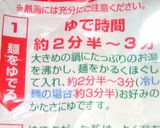 ※熱湯には充分にご注意ください。
1 麺をゆでる
ゆで時間
約2分半～3分
大きめの鍋にたっぷりのお湯
を沸かし、麺をかるくほぐして
入れ、約2分半～3分(冷し
麺の場合 約3分)お好み
のかたさにゆです。